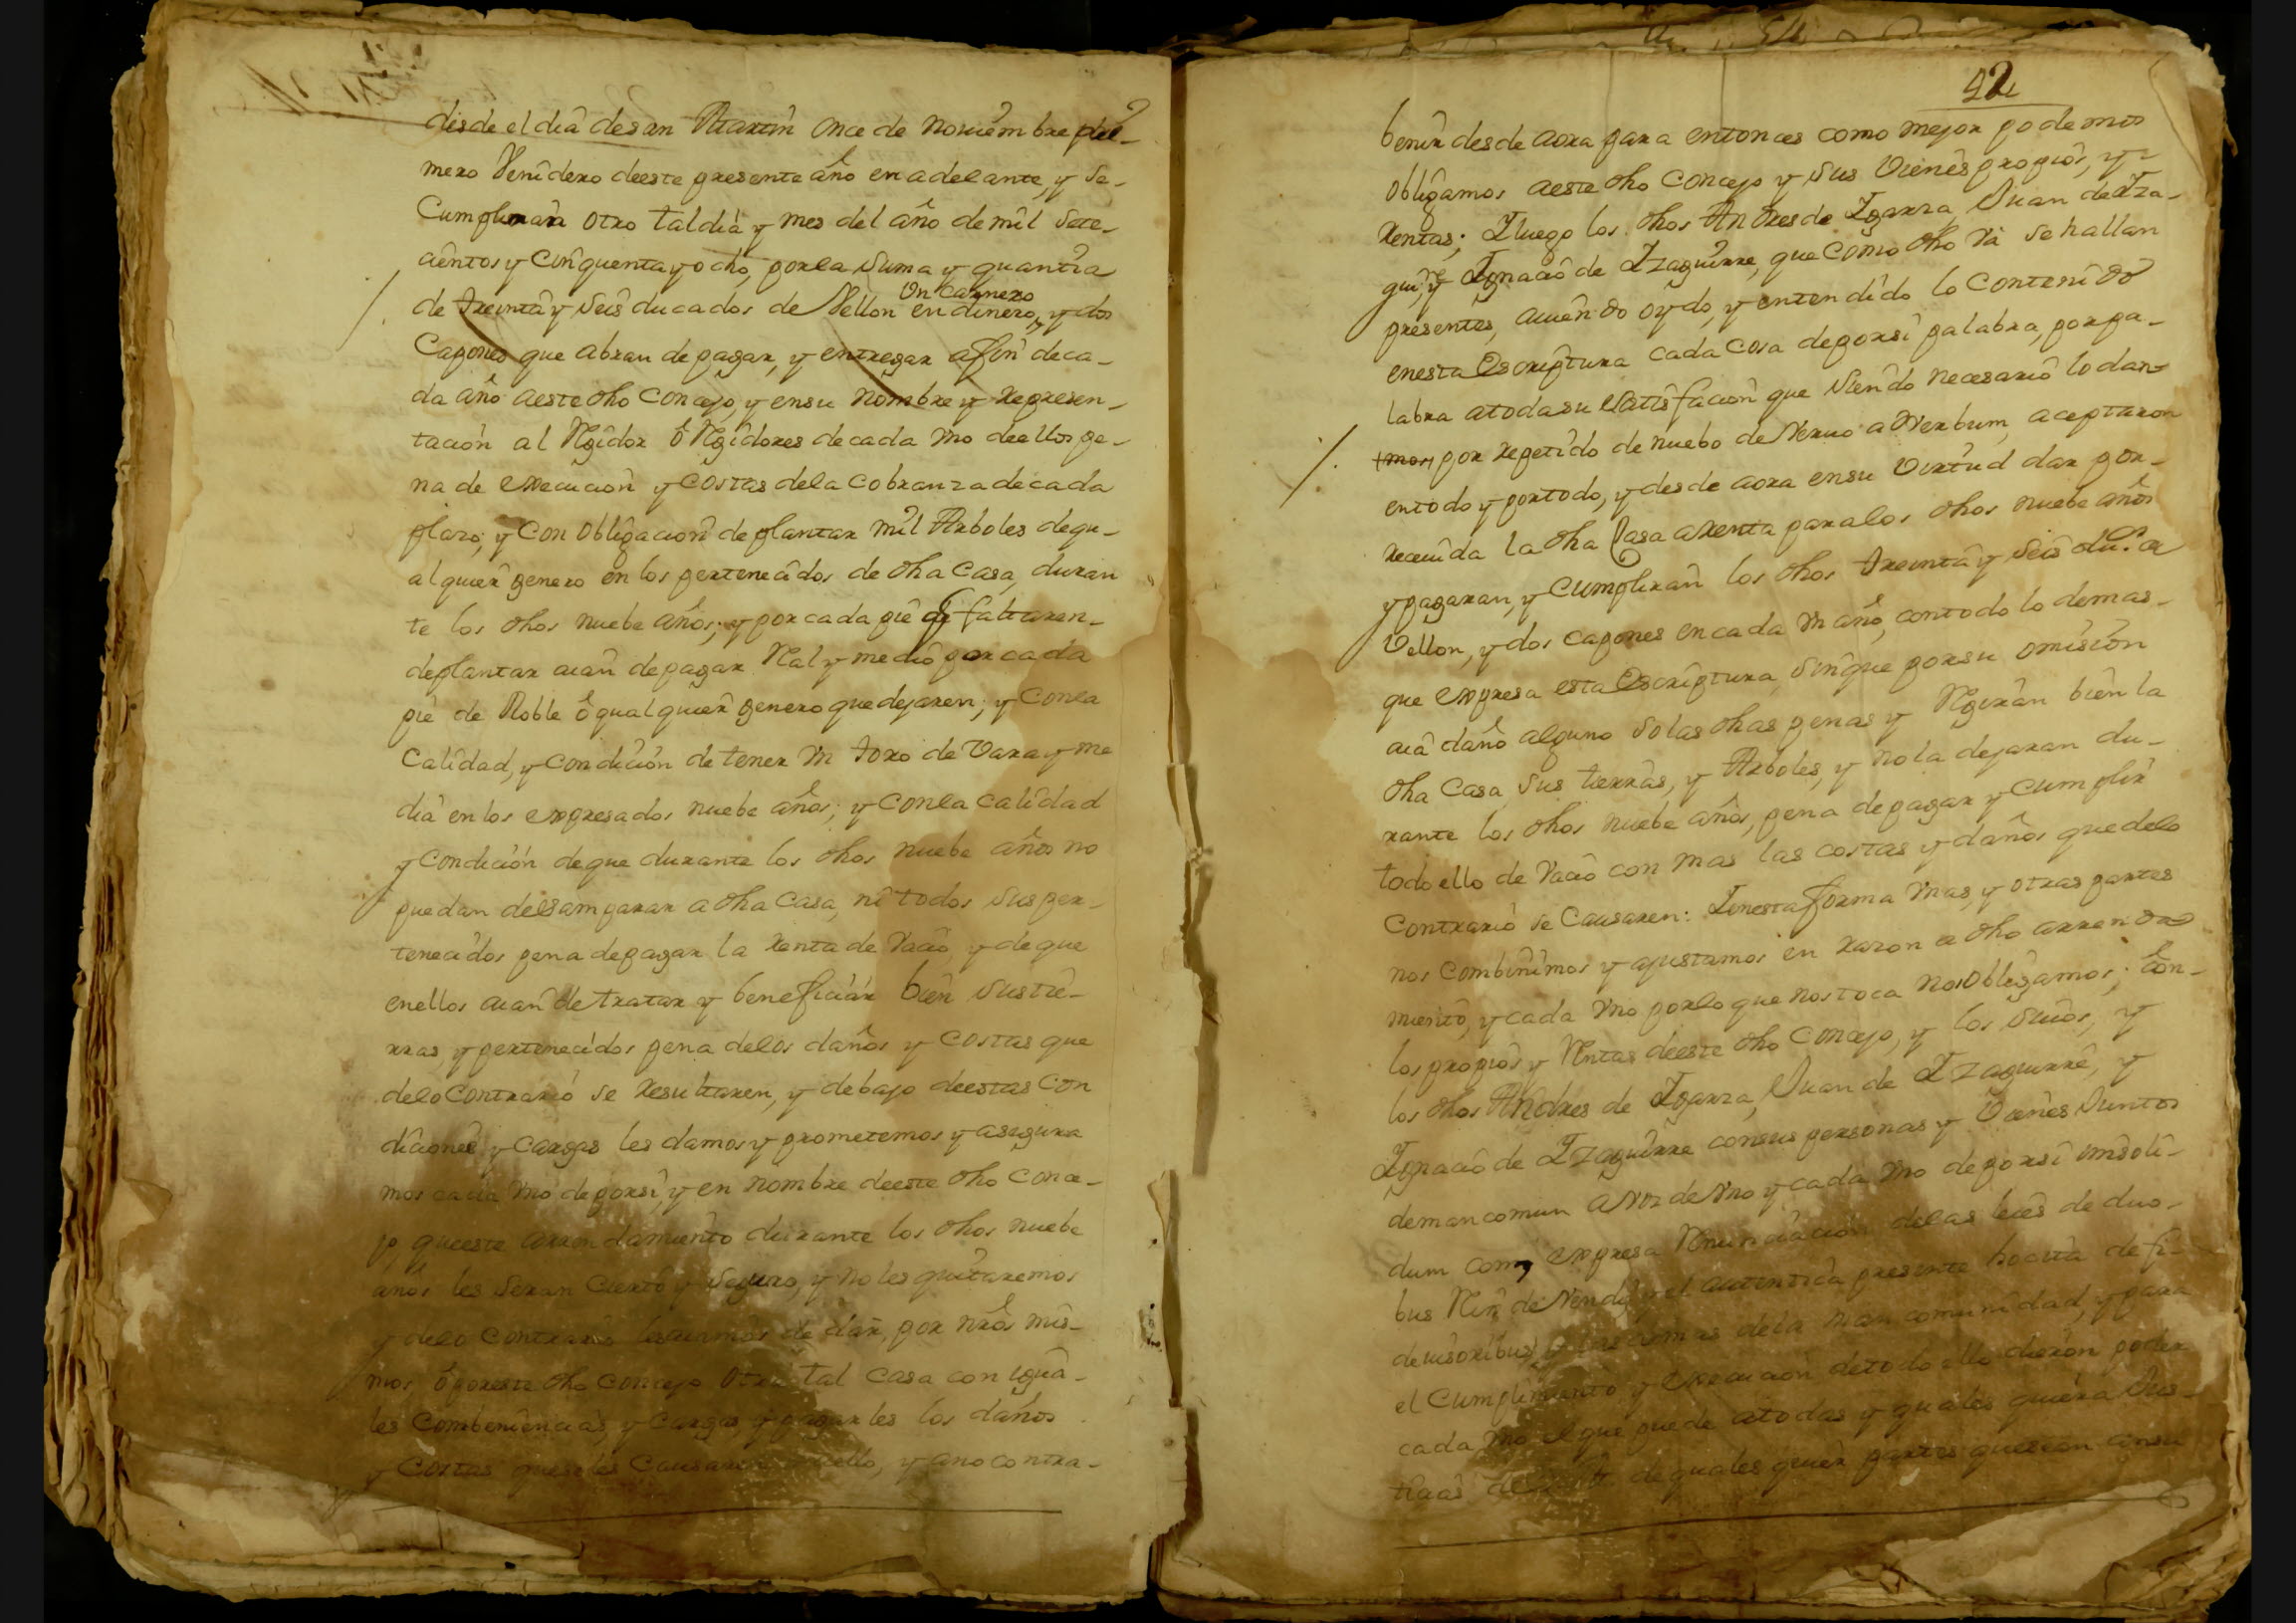 desde el dia de san Martin once de Noviembre pri-
mero Venidero deeste presente año en adelante, y se-
Cumpliran otro tal dia y mes del año de mil sete-
cientos y cinquenta y ocho, por la suma y quantia
un carnero
de treinta y seis ducados de Vellon en dinero, y dos
Capones que abran de pagar, y entregar a fin de ca-
da año a este dho Concejo, y en su nombre y represen-
tacion al Rejidor ô Rejidores de cada uno de ellos pe-
na de execucion y costas de la cobranza de cada
plazo; y con obligacion de plantar mil Arboles de qu-
alquier genero en los pertenecidos de dha Casa, duran
te los dhos nuebe años; y por cada pie q faltaren-
de plantar aian de pagar Real y medio por cada
pie de Roble ô qualquier genero que dejaren; y con la
Calidad, y condicion de tener un toro de Vara y me
dia en los expresados nuebe años; y con la calidad
y condicion de que durante los dhos nuebe años no
puedan desamparar a dha casa, ni todos sus per-
tenecidos pena de pagar la renta de Vacio, y de que
en ellos aian de tratar y beneficiar bien sus tie-
rras, y pertenecidos pena de los daños y costas que
de lo Contrario se resultaren, y debajo de estas con
diciones y cargas les damos y prometemos y asegura
mos cada uno de por si, y en nombre deeste dho Conce-
jo que este arrendamiento durante los dhos nuebe
años les seran cierto y seguro, y no les quitaremos
y de lo contrario les de dar, por nros mis-
mos, ô por este dho Concejo otra tal casa con igua-
les Combeniencias, y cargas, y pagarles los daños
y costas que se les Causaren ello, y a no contra-
42
benir desde aora para entonces como mejor podemos
obligamos a este dho Concejo y sus Vienes propios, y
Rentas; I luego los dhos Andres de Igarza, Juan de Iza-
gui, y Ignacio de Izaguirre, que como dho va se hallan
presentes, auiendo oydo, y entendido lo Contenido
en esta Escriptura cada cosa de por si palabra, por pa-
labra a toda su satisfacion que siendo necesario lo dan
por repetido de nuebo de Veruo a Verbum, aceptaron
en todo y por todo, y desde aora en su virtud dar por
receuida la dha Casa a renta para los dhos nuebe años
y pagaran, y Cumpliran los dhos treinta y seis du.s a
Vellon, y dos capones en cada un año, con todo lo demas-
que expresa esta Escriptura, sin que por su omision
aia daño alguno so las dhas penas y Rejiran bien la
dha Casa sus tierras, y Arboles, y no la dejaran du-
rante los dhos nuebe años, pena de pagar y cumplir
todo ello de Vacio con mas las costas y daños que de lo
Contrario se Causaren: I en esta forma unas, y otras partes
nos combinimos y ajustamos en razon a dho arrenda
miento, y cada uno por lo que nos toca nos obligamos; con-
los propios y Rentas deeste dho Concejo, y los suios, y
los dhos Andres de Igarza, Juan de Izaguirre, y
Ignacio de Izaguirre con sus personas y Vienes Juntos
de mancomun a voz de uno y cada uno de por si insoli-
dum con expresa Renunciacion de las leies de duo-
bus Rex de vendi y el autentica presente hocita de fi-
deiusoribus, y las demas de la mancomunidad, y para
el Cumplimiento y execucion de todo ello dieron poder
cada uno el que puede a todas y quales quiera Jus-
ticias de de quales quier partes que sean a su